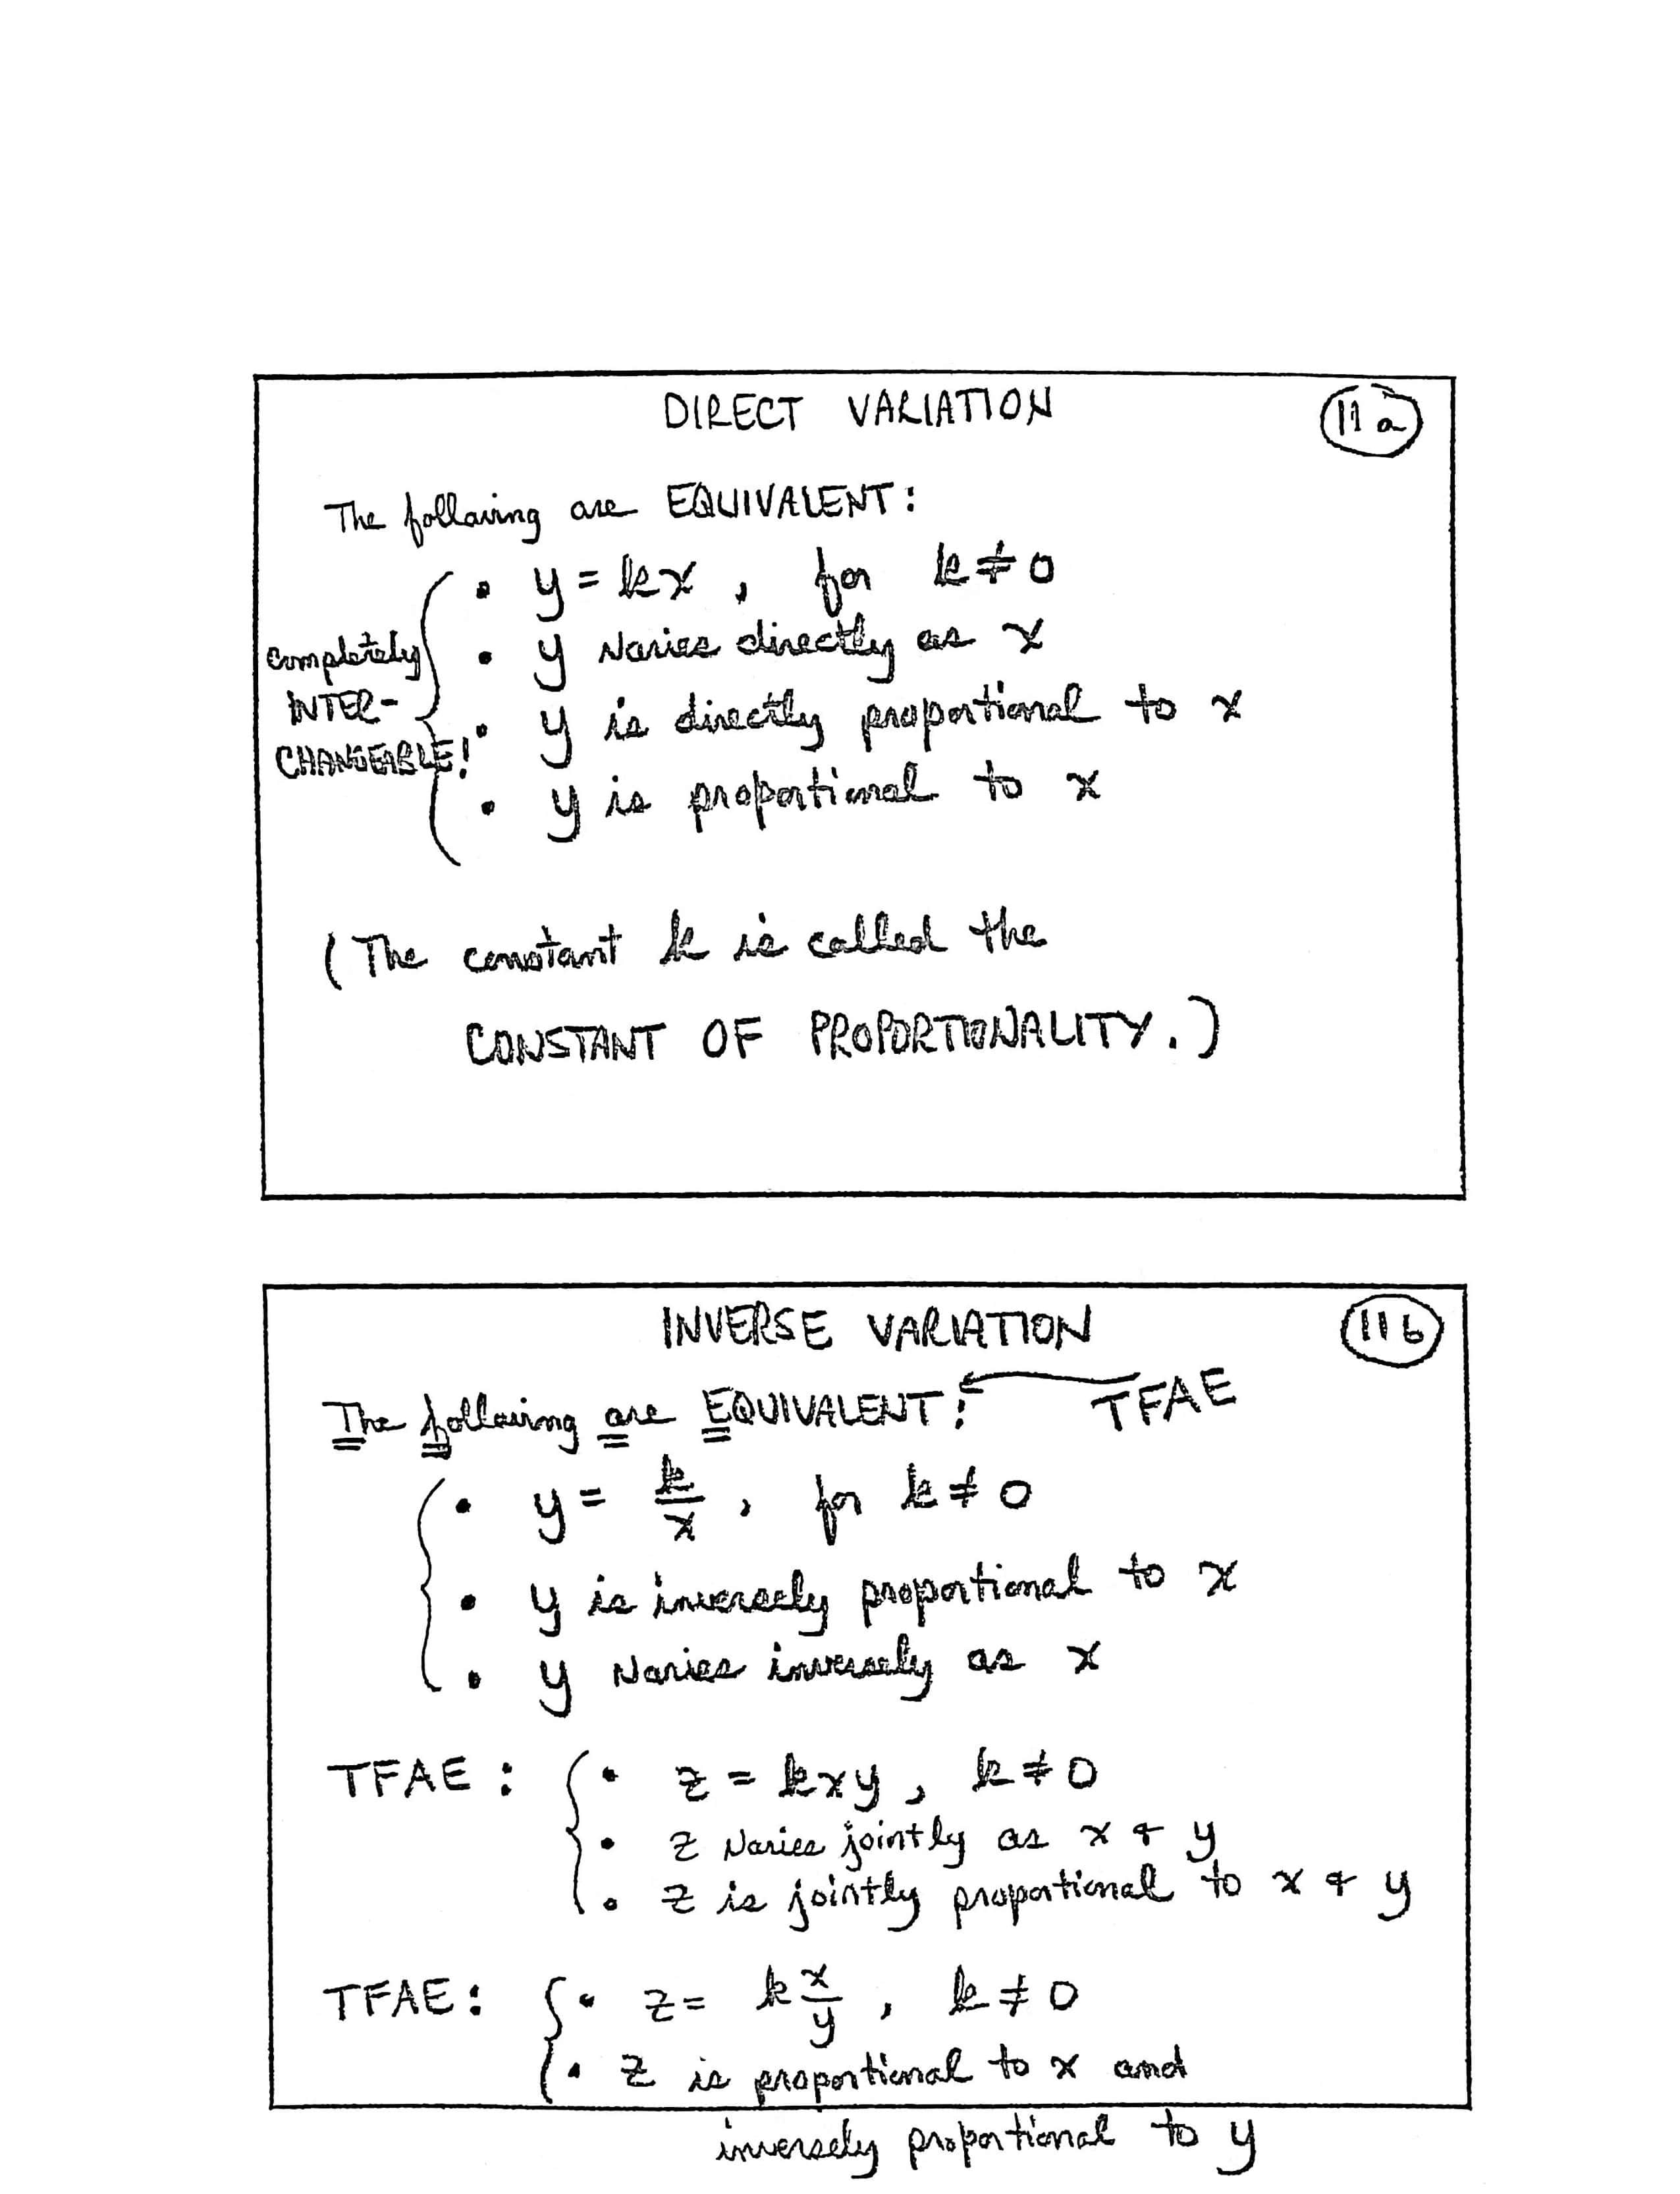 DIRECT VARIATION
11a
The following are EQUIVALENT:
• y = kx, for k ≠ 0
• y varies directly as x
• y is directly proportional to x
• y is proportional to x
completely
INTER-
CHANGEABLE!
(The constant k is called the
CONSTANT OF PROPORTIONALITY.)
INVERSE VARIATION
11b
The following are EQUIVALENT: TFAE
• y = k/x, for k ≠ 0
• y is inversely proportional to x
• y varies inversely as x
TFAE: • z = kxy, k ≠ 0
• z varies jointly as x & y
• z is jointly proportional to x & y
TFAE: • z = k x/y, k ≠ 0
• z is proportional to x and
inversely proportional to y